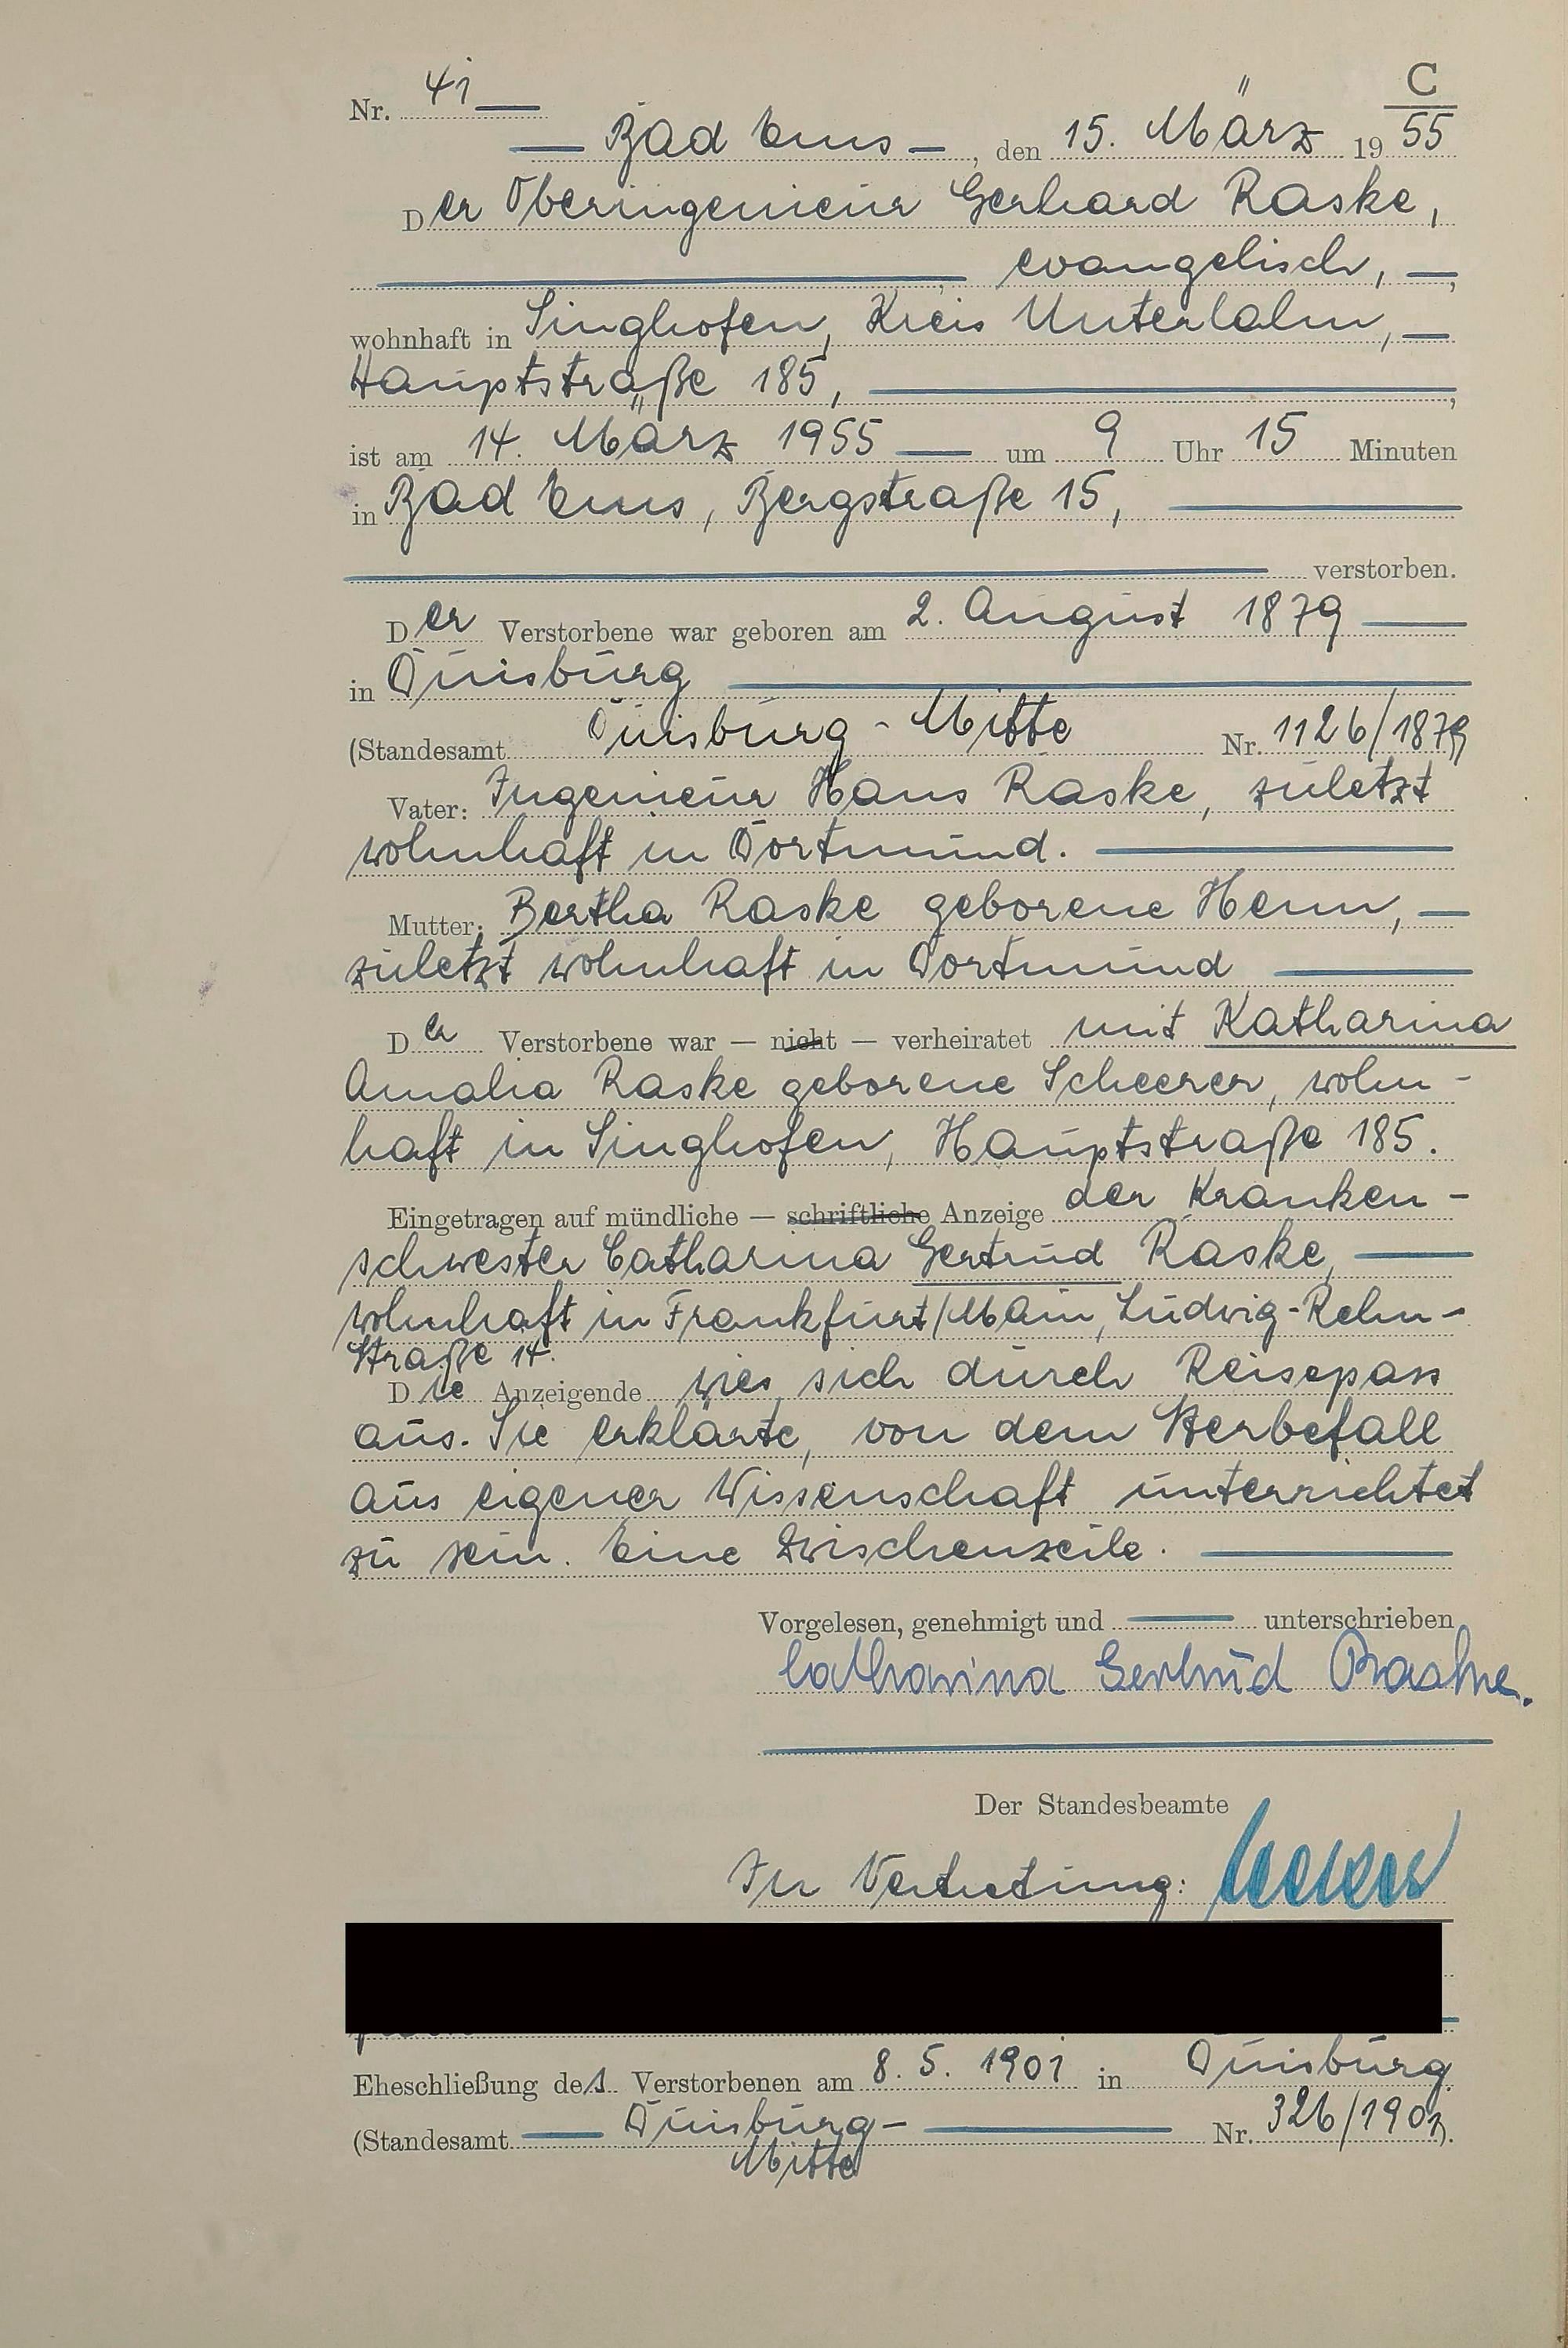 C
Nr. 41
Bad Ems, den 15. März 1955
Der Oberingenieur Gerhard Raske,
evangelisch,
wohnhaft in Singhofen, Kreis Unterlahn,
Hauptstraße 185,
ist am 14. März 1955 um 9 Uhr 15 Minuten
in Bad Ems, Bergstraße 15,
verstorben.
Der Verstorbene war geboren am 2. August 1879
in Duisburg
(Standesamt Duisburg-Mitte Nr. 1126/1879)
Vater: Ingenieur Hans Raske, zuletzt
wohnhaft in Dortmund.
Mutter: Bertha Raske geborene Henn,
zuletzt wohnhaft in Dortmund
Der Verstorbene war — nicht — verheiratet mit Katharina
Amalia Raske geborene Scheerer, wohn-
haft in Singhofen, Hauptstraße 185.
Eingetragen auf mündliche — schriftliche Anzeige der Kranken-
schwester Catharina Gertrud Raske,
wohnhaft in Frankfurt/Main, Ludwig-Rehn-
Straße 14.
Die Anzeigende wies sich durch Reisepass
aus. Sie erklärte, von dem Sterbefall
aus eigener Wissenschaft unterrichtet
zu sein. Eine Zwischenzeile.
Vorgelesen, genehmigt und unterschrieben
Catharina Gertrud Raske.
Der Standesbeamte
In Vertretung:
Eheschließung des Verstorbenen am 8. 5. 1901 in Duisburg
(Standesamt Duisburg- Nr. 326/1901).
Mitte